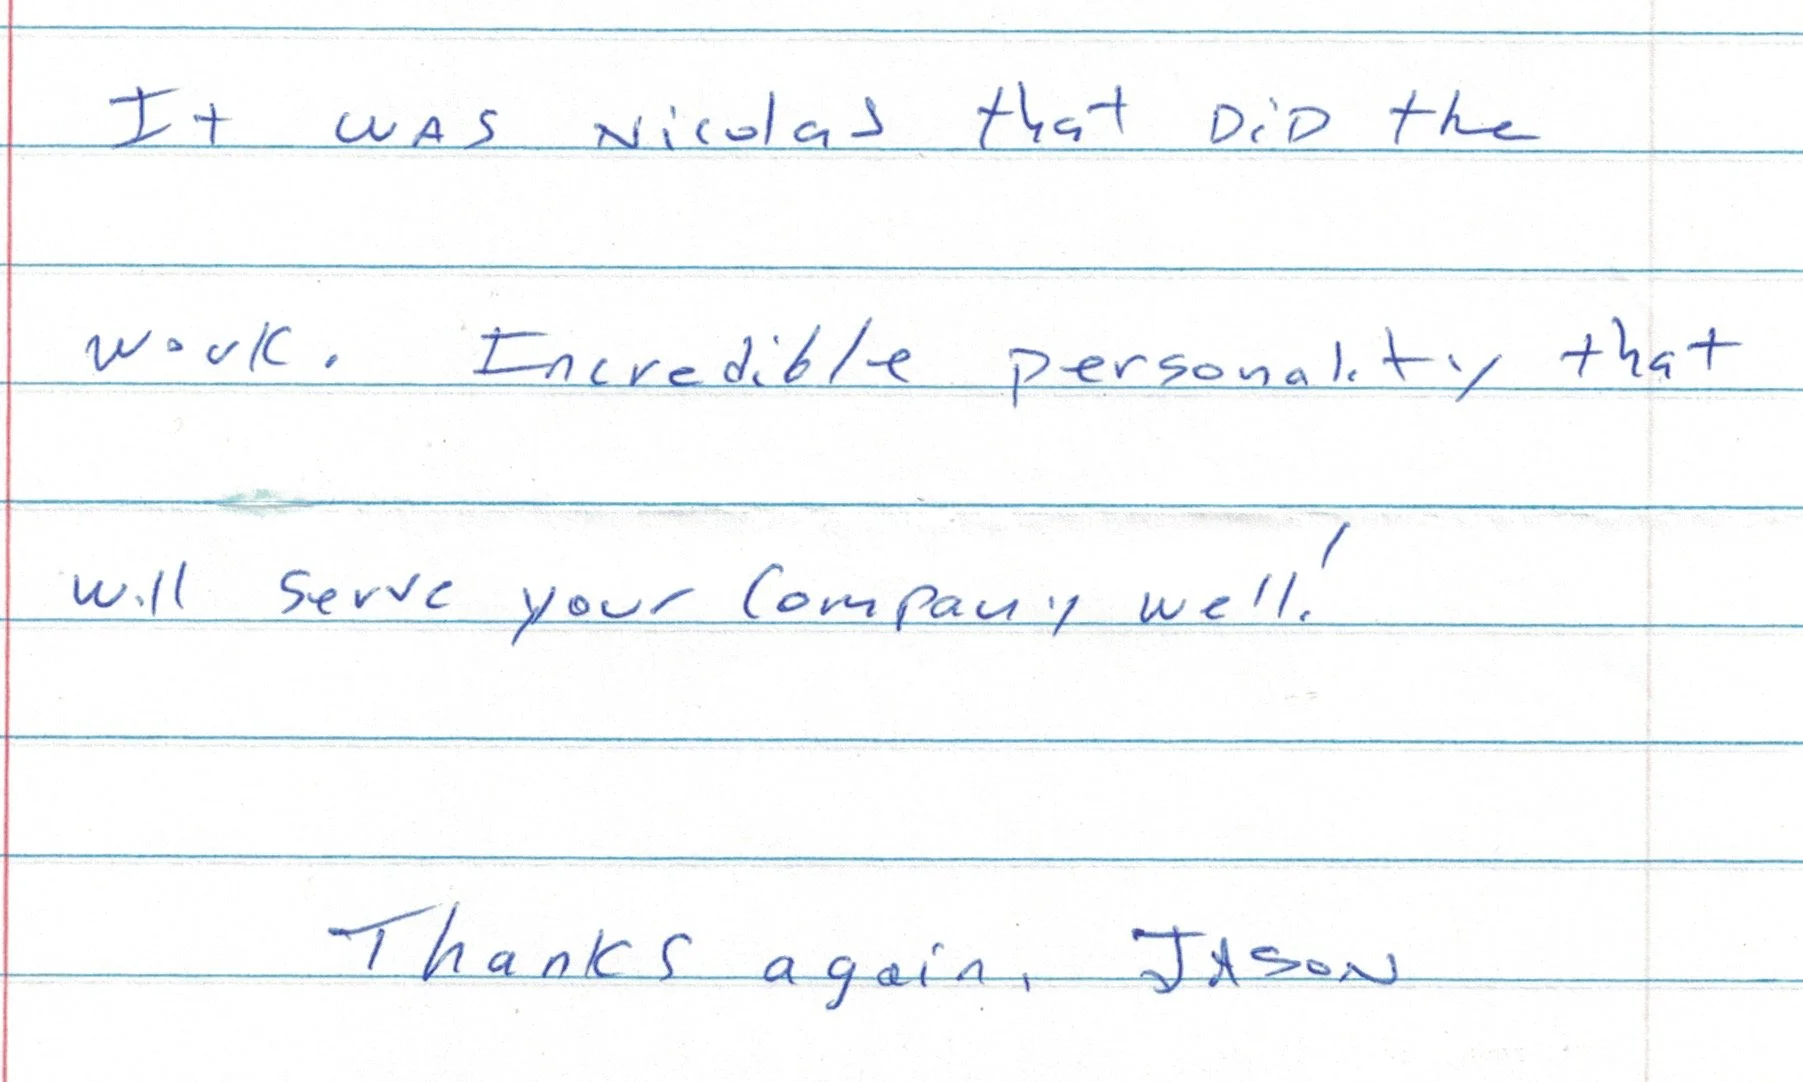 It was Nicolas that DiD the
work. Incredible personality that
will serve your Company well!
Thanks again, JASON